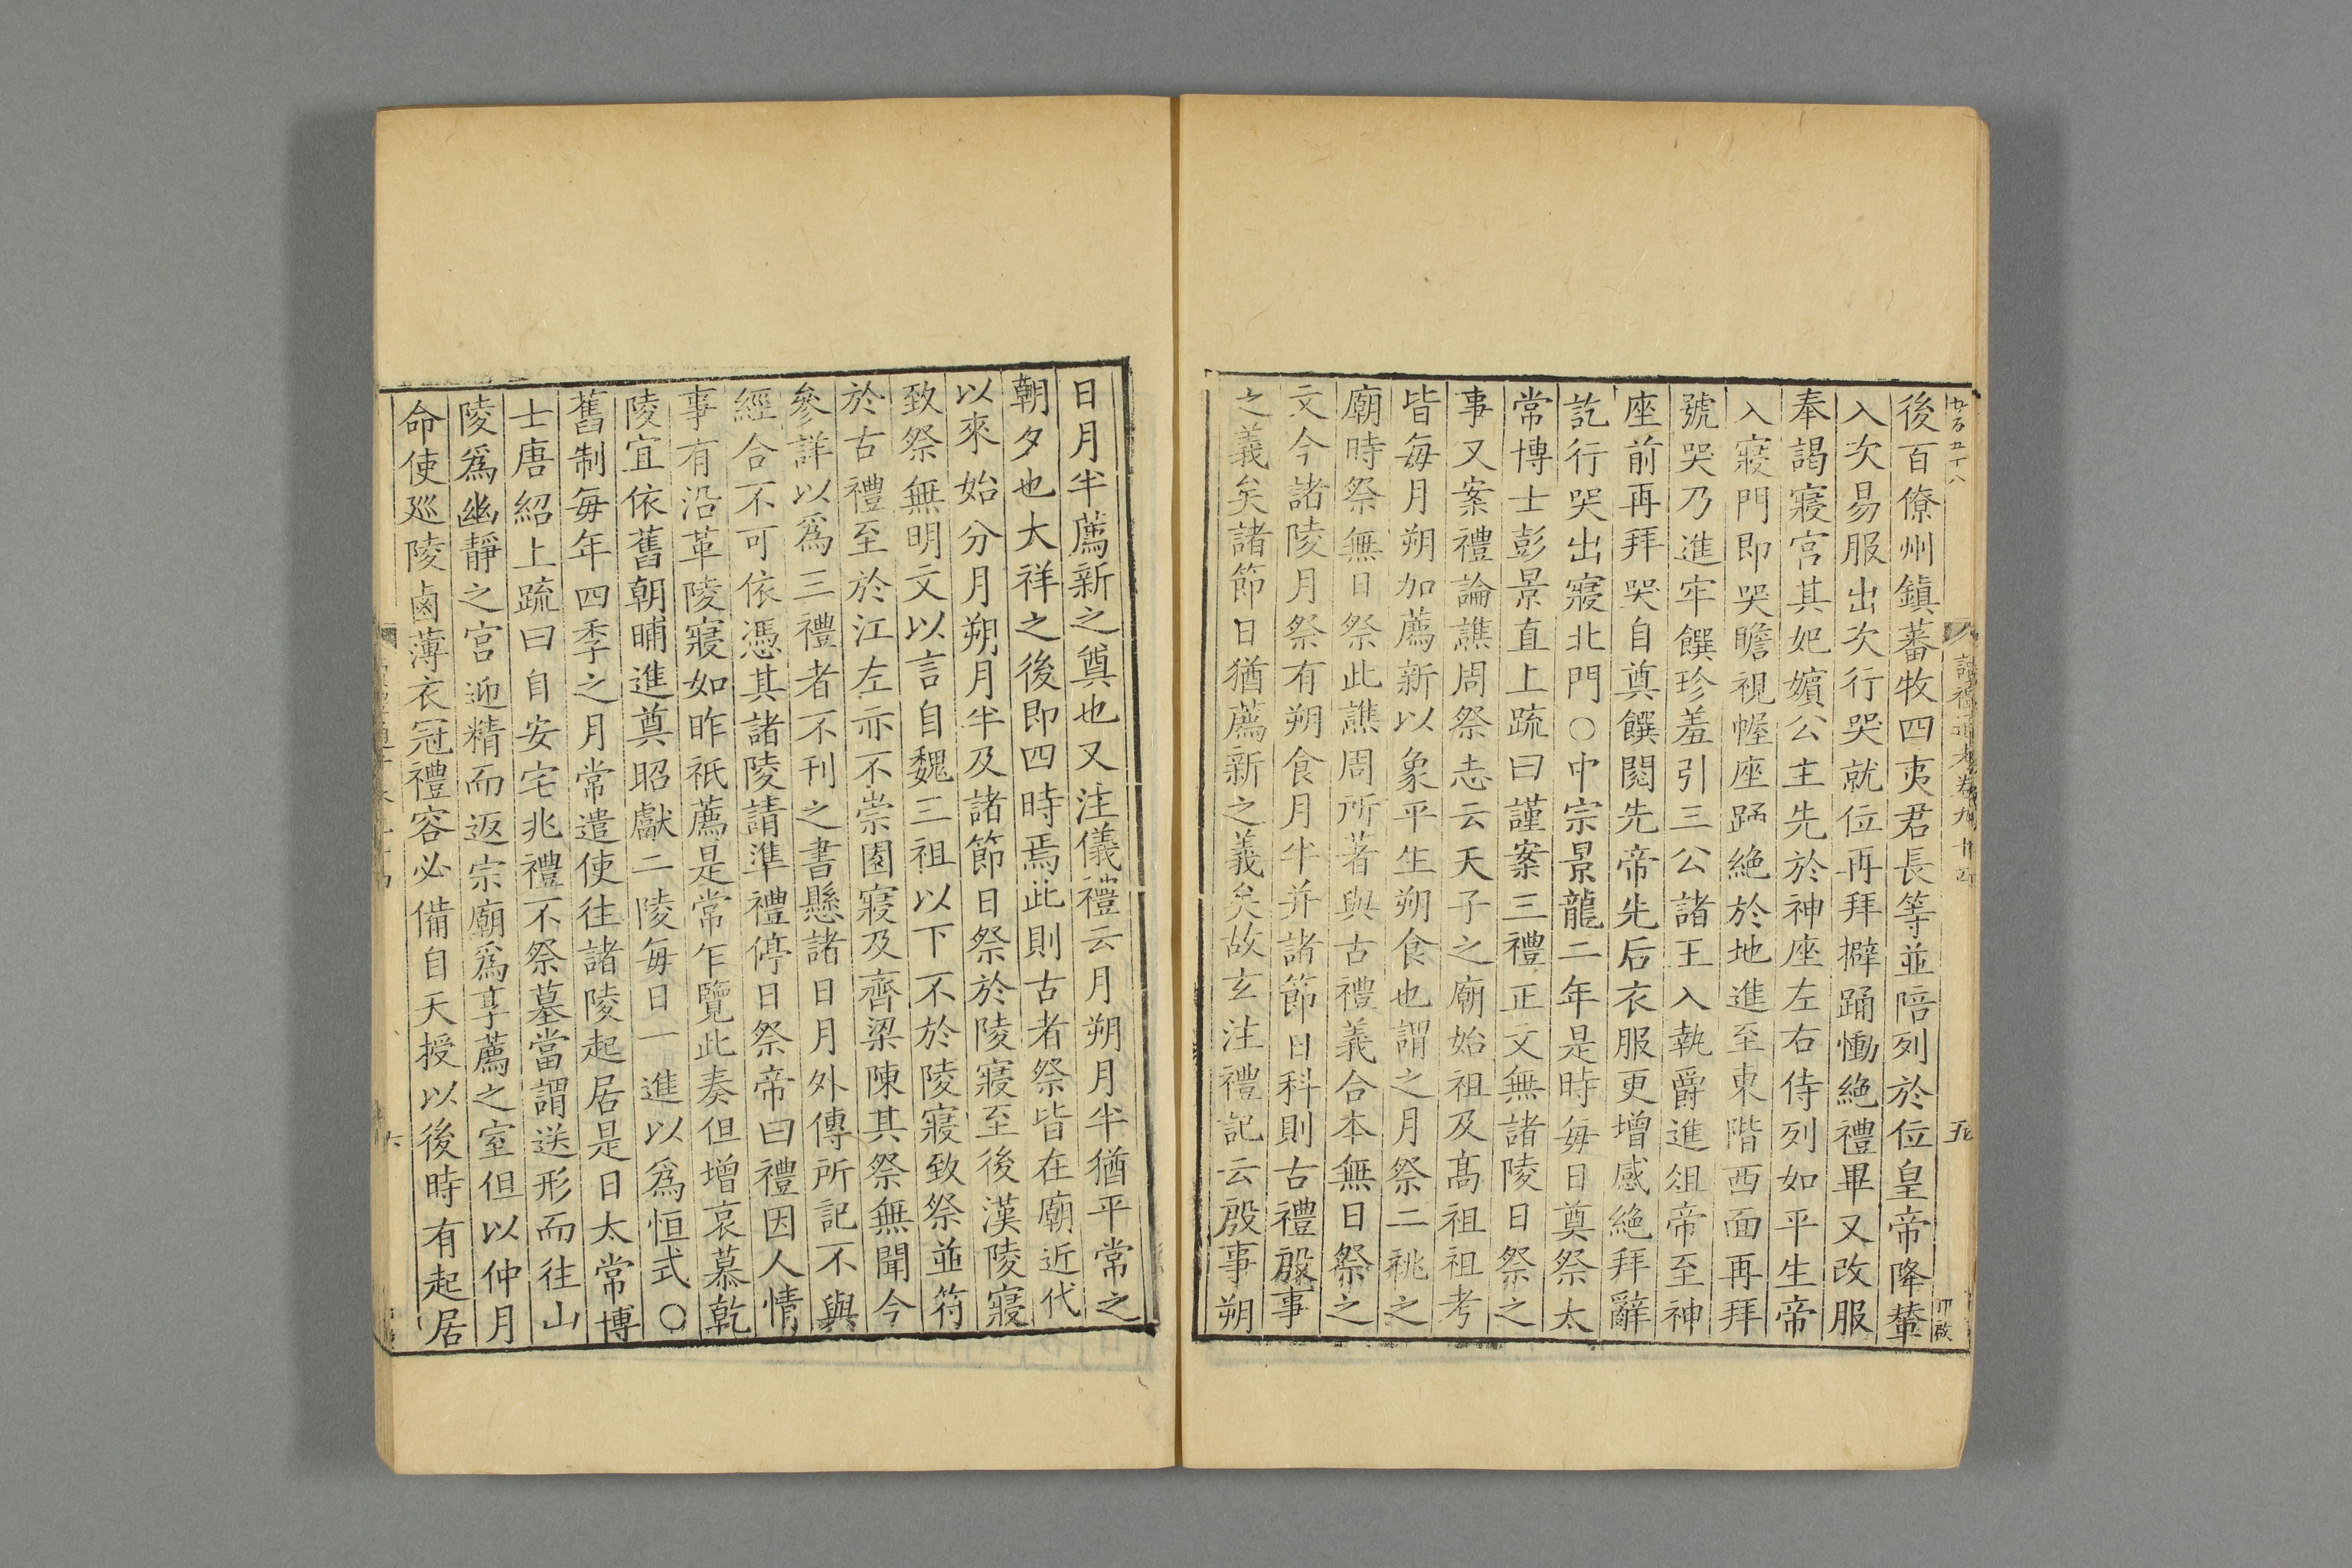 後百僚州鎮蕃牧四夷君長等並陪列於位皇帝降輦
入次易服出次行哭就位再拜擗踊慟絶禮畢又改服
奉謁寢宮其妃嬪公主先於神座左右侍列如平生帝
入寢門即哭瞻視幄座踊絶於地進至東階西面再拜
號哭乃進牢饌珍羞引三公諸王入執爵進俎帝至神
座前再拜哭自奠饌閱先帝先后衣服更增感絶拜辭
訖行哭出寢北門○中宗景龍二年是時每日奠祭太
常博士彭景直上疏曰謹案三禮正文無諸陵日祭之
事又案禮論譙周祭志云天子之廟始祖及髙祖祖考
皆每月朔加薦新以象平生朔食也謂之月祭二祧之
廟時祭無日祭此譙周所著與古禮義合本無日祭之
文今諸陵月祭有朔食月半并諸節日科則古禮殷事
之義矣諸節日猶薦新之義矣故玄注禮記云殷事朔
日月半薦新之奠也又注儀禮云月朔月半猶平常之
朝夕也大祥之後即四時焉此則古者祭皆在廟近代
以來始分月朔月半及諸節日祭於陵寢至後漢陵寢
致祭無明文以言自魏三祖以下不於陵寢致祭並符
於古禮至於江左亦不崇園寢及齊梁陳其祭無聞今
參詳以爲三禮者不刊之書懸諸日月外傳所記不與
經合不可依憑其諸陵請準禮停日祭帝曰禮因人情
事有沿革陵寢如昨祇薦是常乍覽此奏但增哀慕乾
陵宜依舊朝晡進奠昭獻二陵每日一進以爲恒式○
舊制每年四季之月常遣使往諸陵起居是日太常博
士唐紹上疏曰自安宅兆禮不祭墓當謂送形而往山
陵爲幽靜之宮迎精而返宗廟爲享薦之室但以仲月
命使廵陵鹵薄衣冠禮容必備自天授以後時有起居